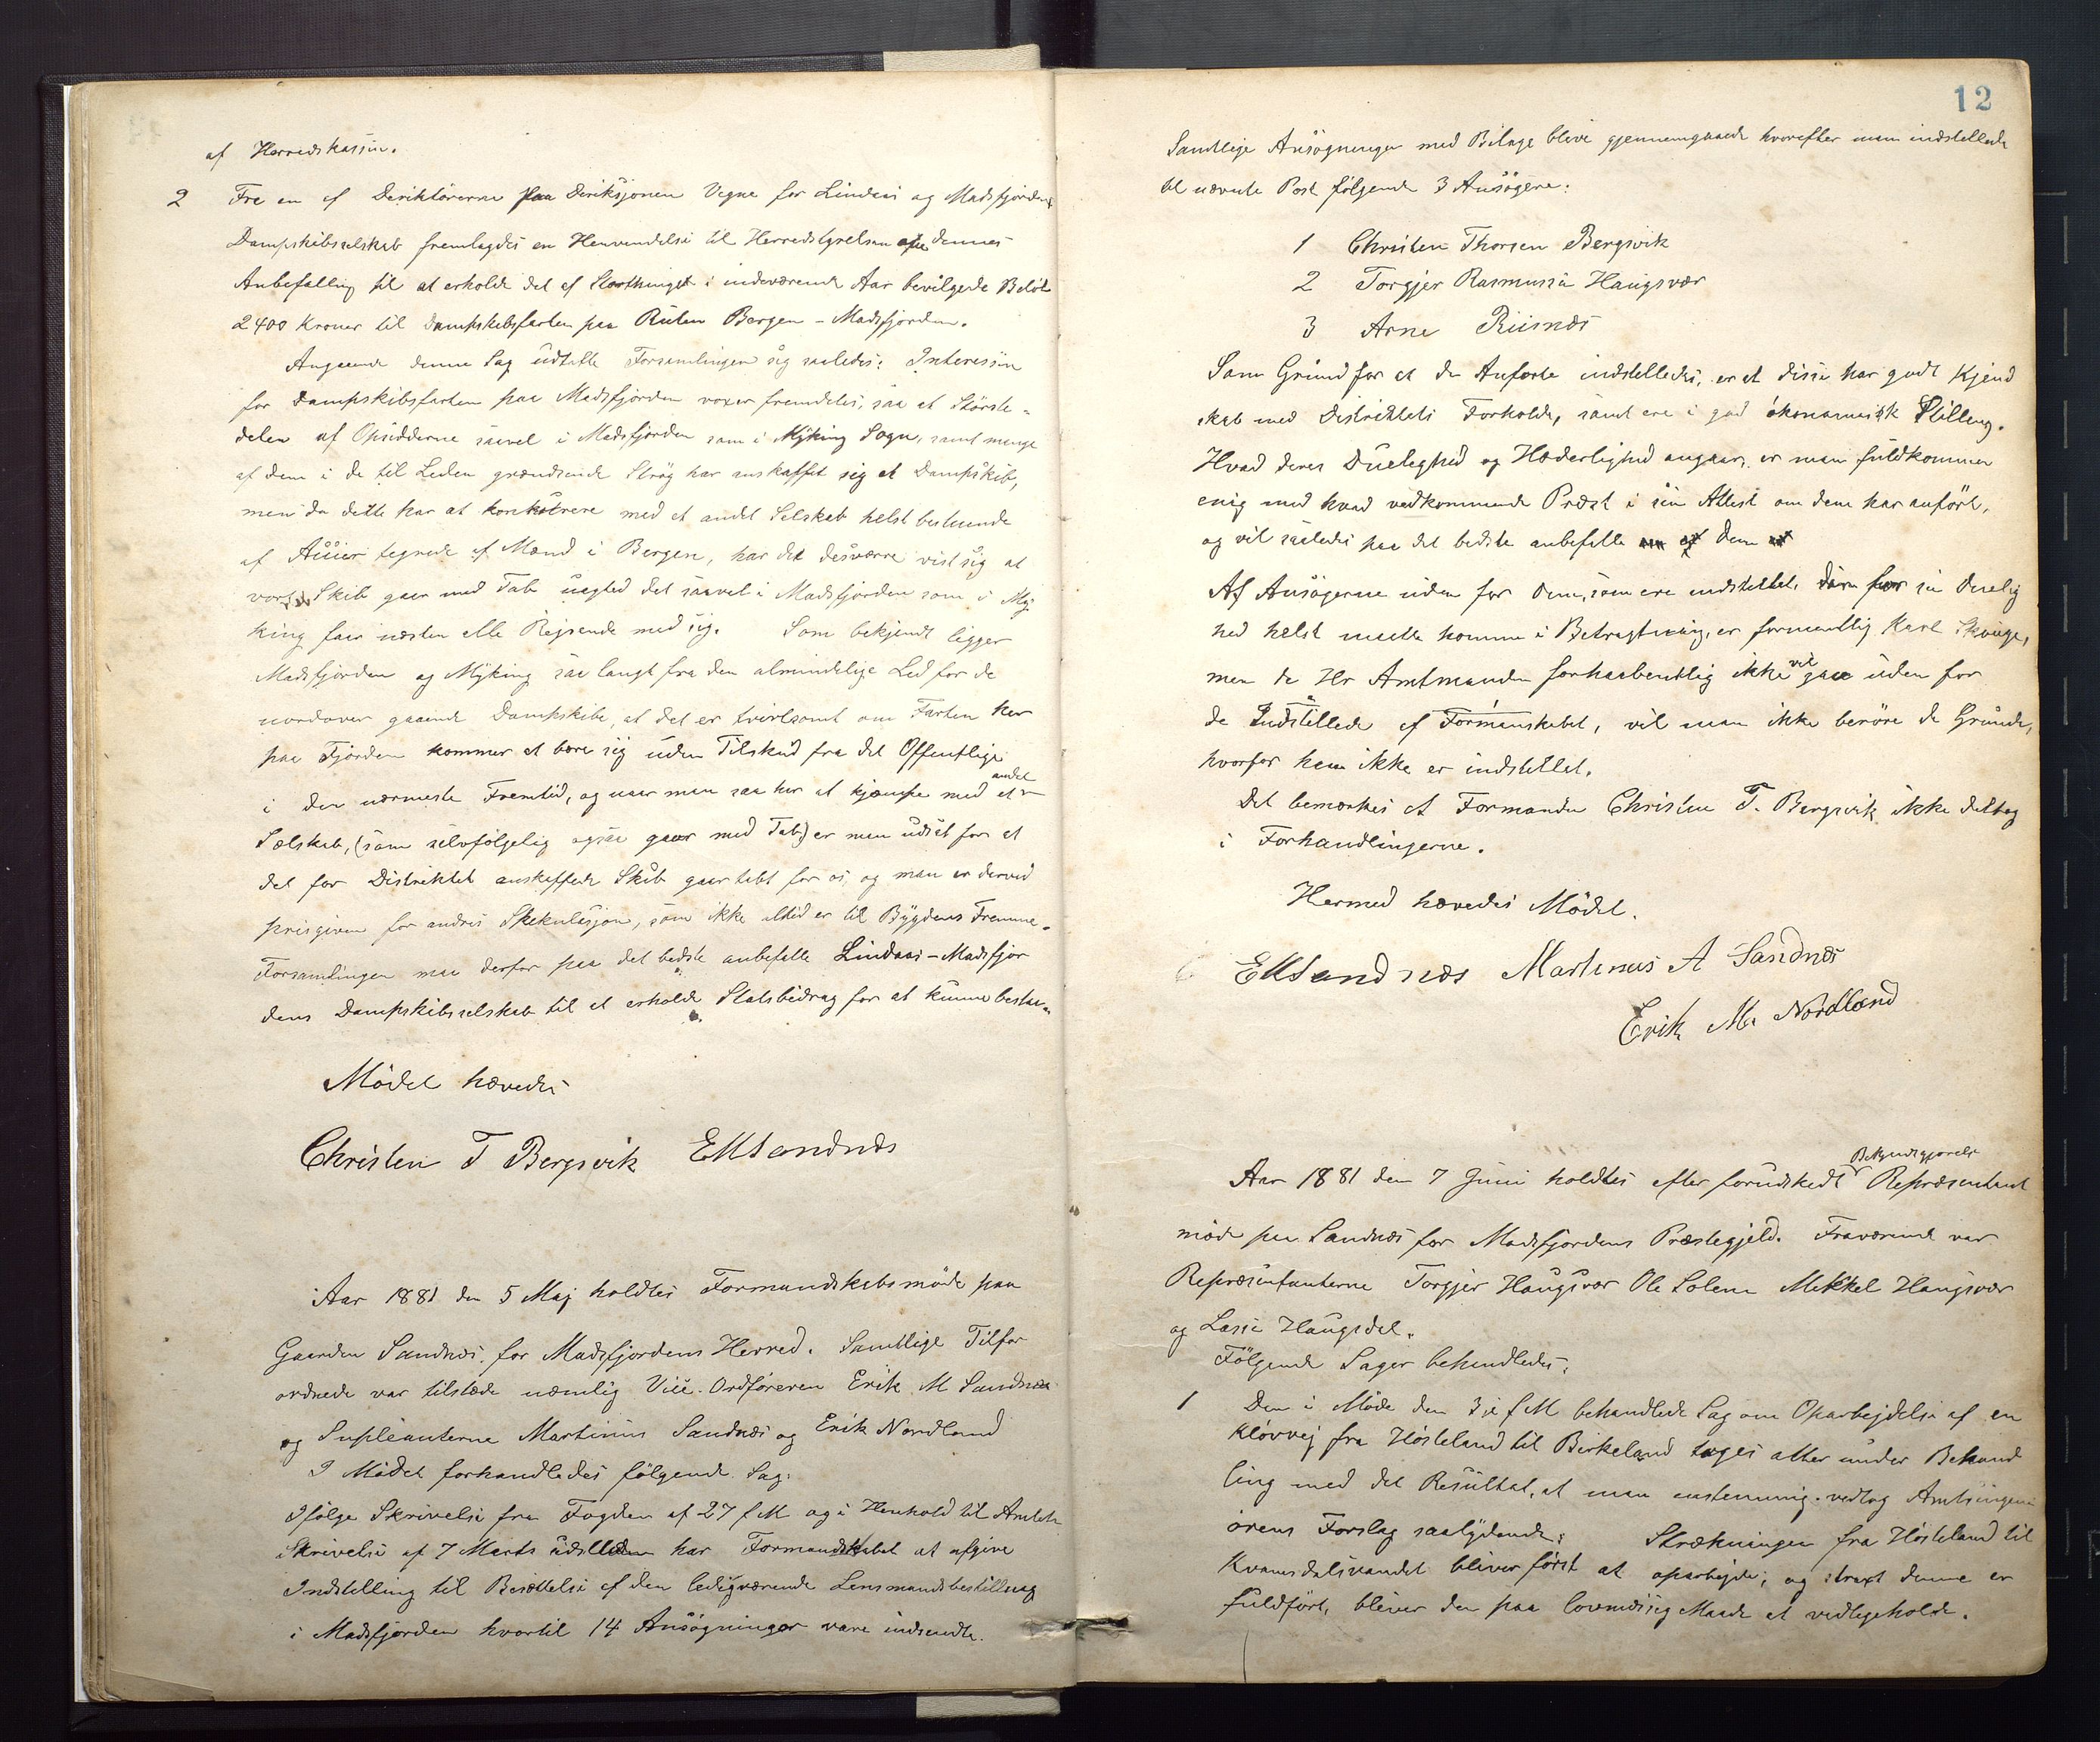 af Herredskassen.
2 Fra en af Deriktörerne paa Deriksjonen Vegne for Lindaas og Madsfjordens
Dampskibsselskab fremlagdes en Henvendelse til Herredstyrelsen om dennes
Anbefalling til at erholde det af Storthinget i indeværende Aar bevilgede Belöb
2400 Kroner til Dampskibsfarten paa Ruten Bergen - Madsfjorden.
Angaaende denne Sag udtalte Forsamlingen sig saaledes: Interessen
for Dampskibsfarten paa Madsfjorden voxer fremdeles, saa at Störste-
delen af Opsidderne saavel i Madsfjorden som i Myking Sogn, samt mange
af dem i de til Leden grændsende Strög har anskaffet sig et Dampskib,
men da dette har at konkurere med et andet Selskab helst bestaaende
af Aktier tegnede af Mænd i Bergen, har det desværre vist sig at
vort Skib gaar med Tab uagted det saavel i Madsfjorden som i My-
king faar næsten alle Rejsende med sig. Som bekjendt ligger
Madsfjorden og Myking saa langt fra den almindelige Led for de
nordover gaaende Dampskibe, at det er tvivlsomt om Farten her
paa Fjorden kommer at bære sig uden Tilskud fra det Offentlige
i den nærmeste Fremtid, og naar man saa har at kjæmpe med et andet
Selskab, (som selvfölgelig ogsaa gaar med Tab) er man udsat for at
det for Distriktet anskaffede Skib gaar tabt for os, og man er derved
prisgiven for andres Spekulasjon, som ikke altid er til Bygdens Fremme.
Forsamlingen maa derfor paa det bedste anbefalle Lindaas - Madsfjor
dens Dampskibsselskab til at erholde Statsbidrag for at kunne bestaa.
Mödet hævedes
Christen T Bergsvik EMSandnæs
Aar 1881 den 5 Maj holdtes Formandskabsmöde paa
Gaarden Sandnæs for Madsfjordens Herred. Samtlige Tilfor
ordnede var tilstæde nemlig Vice-Ordföreren Erik M Sandnæs
og Supleanterne Martinus Sandnæs og Erik Nordland
I Mödet forhandledes fölgende Sag:
Ifölge Skrivelse fra Fogden af 27 f M og i Henhold til Amtets
Skrivelse af 7 Marts har Formandskabet at afgive
Indstilling til Besættelse af den ledigværende Lensmandsbestilling
i Madsfjorden hvortil 14 Ansögninger vare indsendte.
12
Samtlige Ansögninger med Bilage bleve gjennemgaaede hvorefter man indstillede
til nævnte Post fölgende 3 Ansögere:
1 Christen Thorsen Bergsvik
2 Torgjer Rasmussen Haugsvær
3 Arne Riisnæs
Som Grund for at de Anförte indstilledes, er at disse har godt Kjend
skab med Distriktets Forholde, samt ere i god ökonomisk Stilling.
Hvad deres Duelighed og Hæderlighed angaar, er man fuldkommen
enig med hvad vedkommende Præst i sin Attest om dem har anfört,
og vil saaledes paa det bedste anbefalle dem
Af Ansögerne uden for dem, som ere indstillet, der for sin Duelig
hed helst maatte komme i Betragtning, er formentlig Karl Skauge,
men da Hr Amtmanden forhaabentlig ikke vil gaa uden for
de Indstillede af Formanskabet, vil man ikke beröre de Grunde,
hvorfor han ikke er indstillet.
Det bemærkes at Formanden Christen T. Bergsvik ikke deltog
i Forhandlingerne.
Hermed hævedes Mödet.
EMSandnæs Martinus A Sandnæs
Erik M. Nordland
Aar 1881 den 7 Juni holdtes efter forudskedt Bekjendtgjörelse Repræsentant
möde paa Sandnæs for Madsfjordens Præstegjeld. Fraværende var
Repræsentanterne Torgjer Haugsvær Ole Solem Mikkel Haugsvær
og Lasse Haugsdal.
Fölgende Sager behandledes:
1 Den i Möde den 3die f M behandlede Sag om Oparbejdelse af en
Klövvej fra Hösteland til Birkeland toges atter under Behand
ling med det Resultat, at man enstemmig vedtog Amtsingeni
örens Forslag saalydende: Strækningen fra Hösteland til
Kvamsdalsvandet bliver först at oparbejde; og straxt denne er
fuldfört, bliver den paa lovmæssig Maade at vedligeholde.